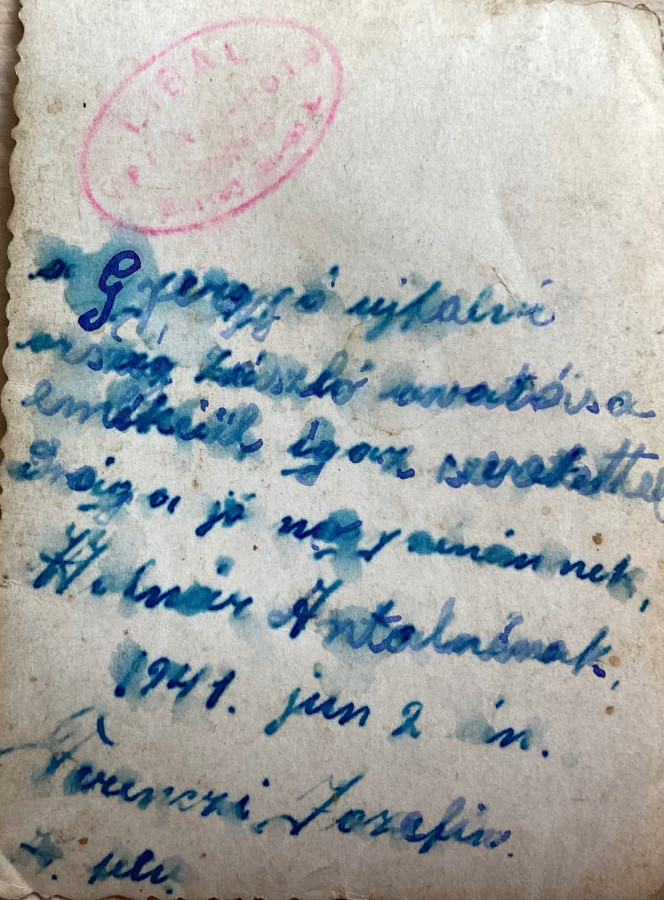 LIBAL
a Gyergyó ujfalvi
ország zászló avatóisa
emékiül igaz szeretettel
Drága, jó nagy nénémnek,
Molnár Antalnénak,
1941. jun 2 án.
Ferenczi Jozefin.